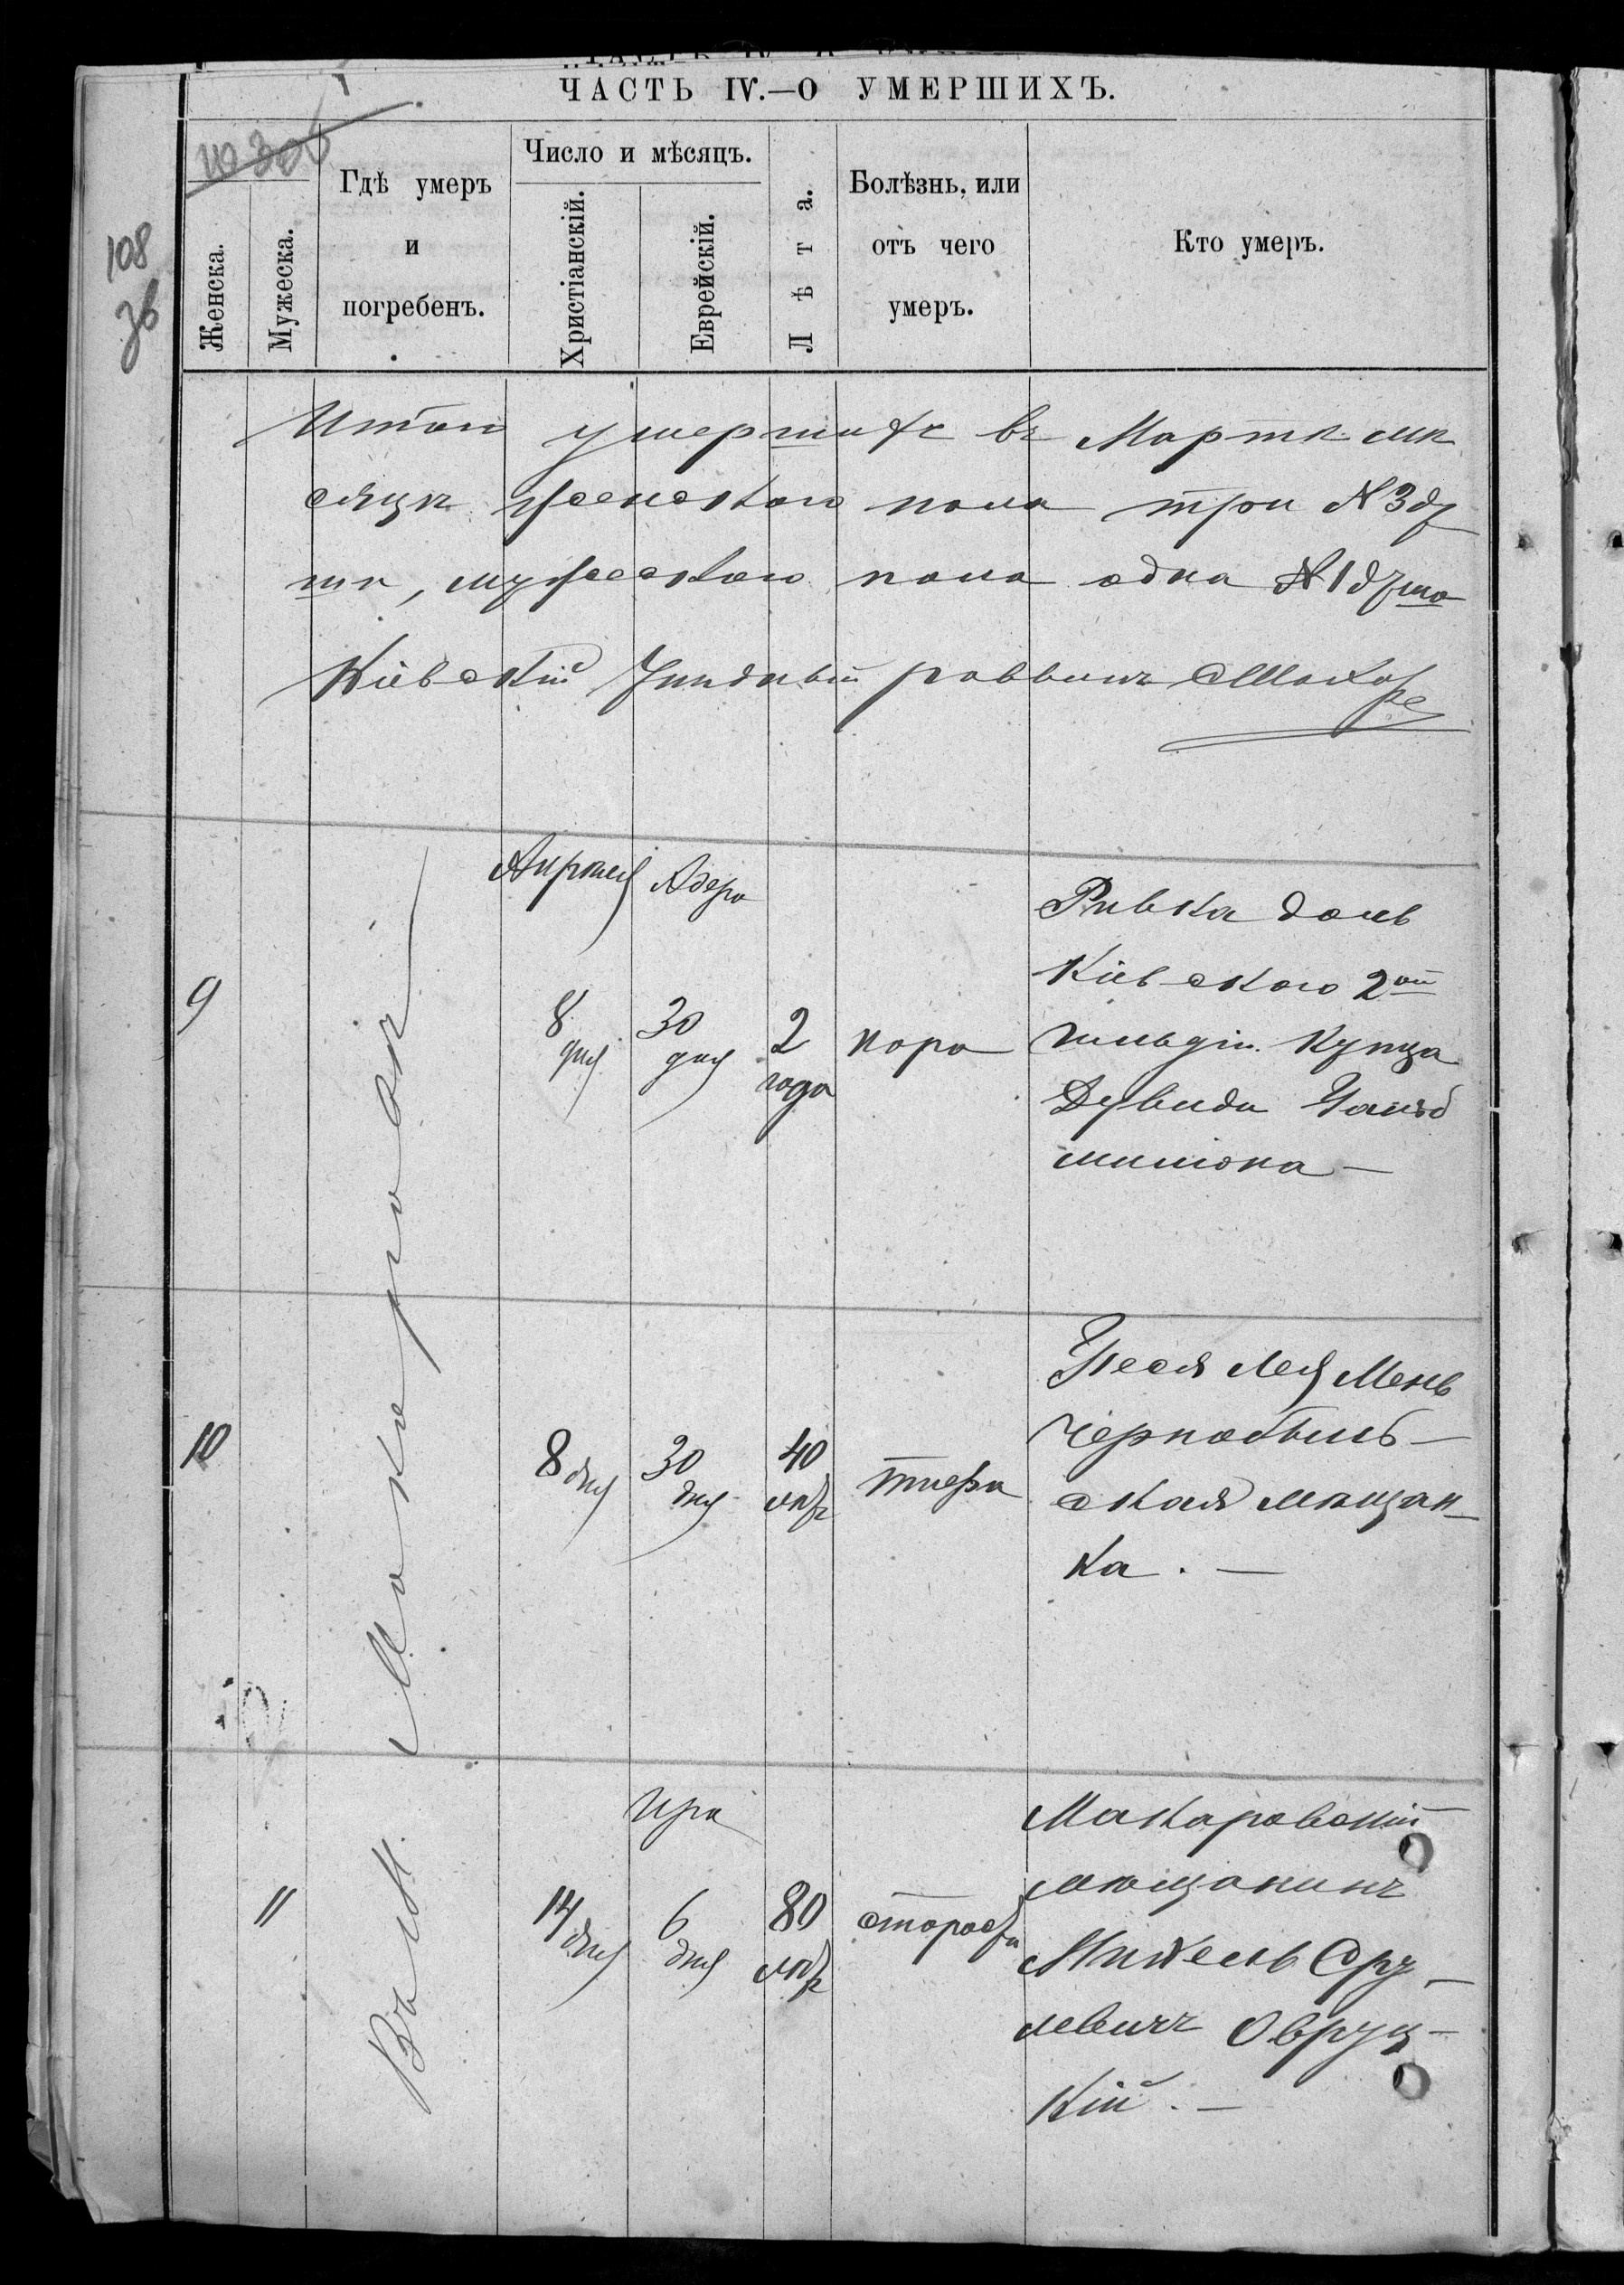 ЧАСТЬ IV.—О УМЕРШИХЪ.
108
36
Женска.
Мужеска.
Гдѣ умеръ
и
погребенъ.
Число и мѣсяцъ.
Христіанскій.
Еврейскій.
Лѣта.
Болѣзнь, или
отъ чего
умеръ.
Кто умеръ.
Итого умершихъ въ Мартѣ мѣ
сяцѣ женскаго пола три №3 ду
шъ, мужескаго пола одна №1 душа
Кіевскій Уѣздный раввинъ
Въ м. Макаровѣ
Апрѣля Адера
9
8 дня
30 дня
2 года
кора
Ривка дочь
Кіевскаго 2ой
гильдіи Купца
Дувида
10
8 дня
30 дня
40 лѣтъ
тифа
Песя Лея Мень
Чернобыль—
ская мѣщан—
ка.—
Ира
11
14 дня
6 дня
80 лѣтъ
старости
Макаровскій
мѣщанинъ
Михель Сру—
левичъ Овруц—
кій.—